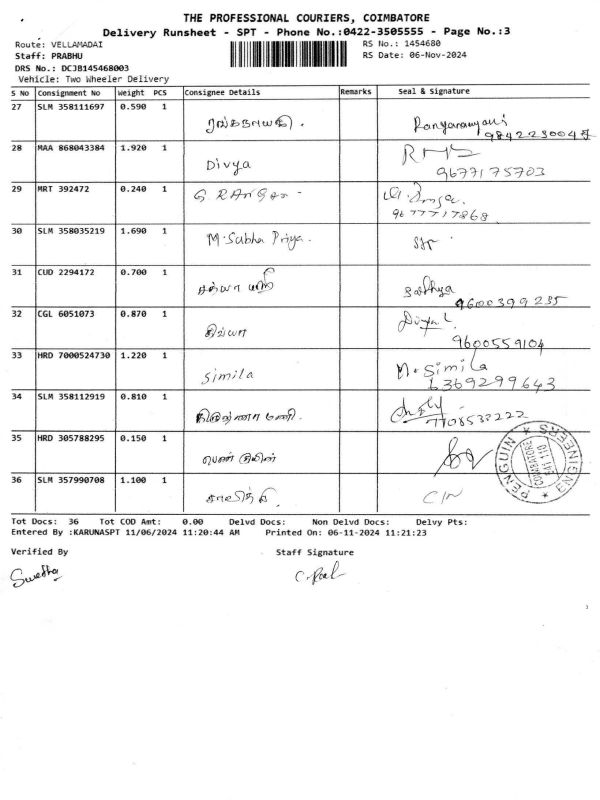 THE PROFESSIONAL COURIERS, COIMBATORE
Delivery Runsheet - SPT - Phone No.:0422-3505555 - Page No.:3
Route: VELLAMADAI
Staff: PRABHU
DRS No.: DCJB145468003
Vehicle: Two Wheeler Delivery
RS No.: 1454680
RS Date: 06-Nov-2024
S No Consignment No Weight PCS Consignee Details Remarks Seal & Signature
27 SLM 358111697 0.590 1
ரங்கநாயகி.
28 MAA 868043384 1.920 1
Divya
9677175703
29 MRT 392472 0.240 1 G RANGan
9677717868
30 SLM 358035219 1.690 1
M. Subha Priya.
31 CUD 2294172 0.700 1
Sathya
9600399235
32 CGL 6051073 0.870 1
திவ்யா
Divya
9600559104
33 HRD 7000524730 1.220 1
Simila
M. Simila
6369299643
34 SLM 358112919 0.810 1
7708533222
35 HRD 305788295 0.150 1
PENGUIN ★ ENGINEERS ★
COIMBATORE
641 110
36 SLM 357990708 1.100 1
C/N
Tot Docs: 36 Tot COD Amt: 0.00 Delvd Docs: Non Delvd Docs: Delvy Pts:
Entered By :KARUNASPT 11/06/2024 11:20:44 AM Printed On: 06-11-2024 11:21:23
Verified By Staff Signature
Swetha